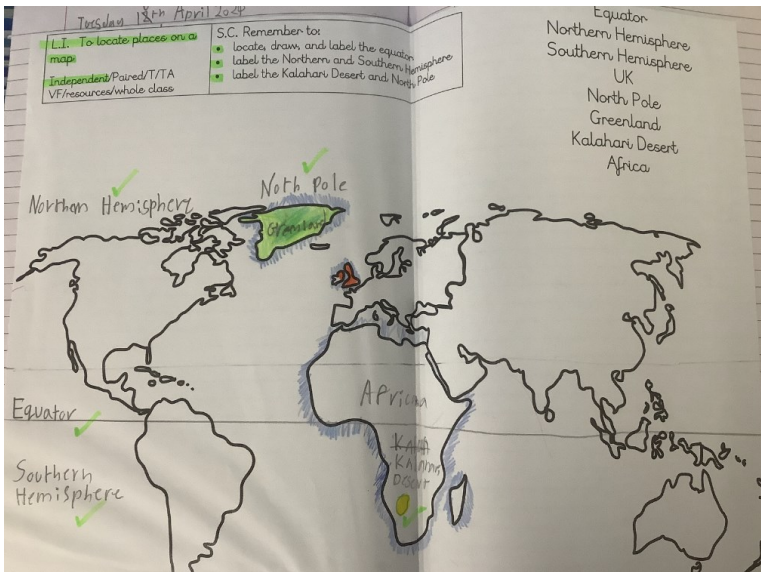 Tuesday 1th April 2024
L.I. To locate places on a
map
Independent/Paired/T/TA
VF/resources/whole class
S.C. Remember to:
• locate, draw, and label the equator
• label the Northern and Southern Hemisphere
• label the Kalahari Desert and North Pole
Equator
Northern Hemisphere
Southern Hemisphere
UK
North Pole
Greenland
Kalahari Desert
Africa
Noth Pole
Northon Hemisphere
Africa
Equator
Southern
Hemisphere